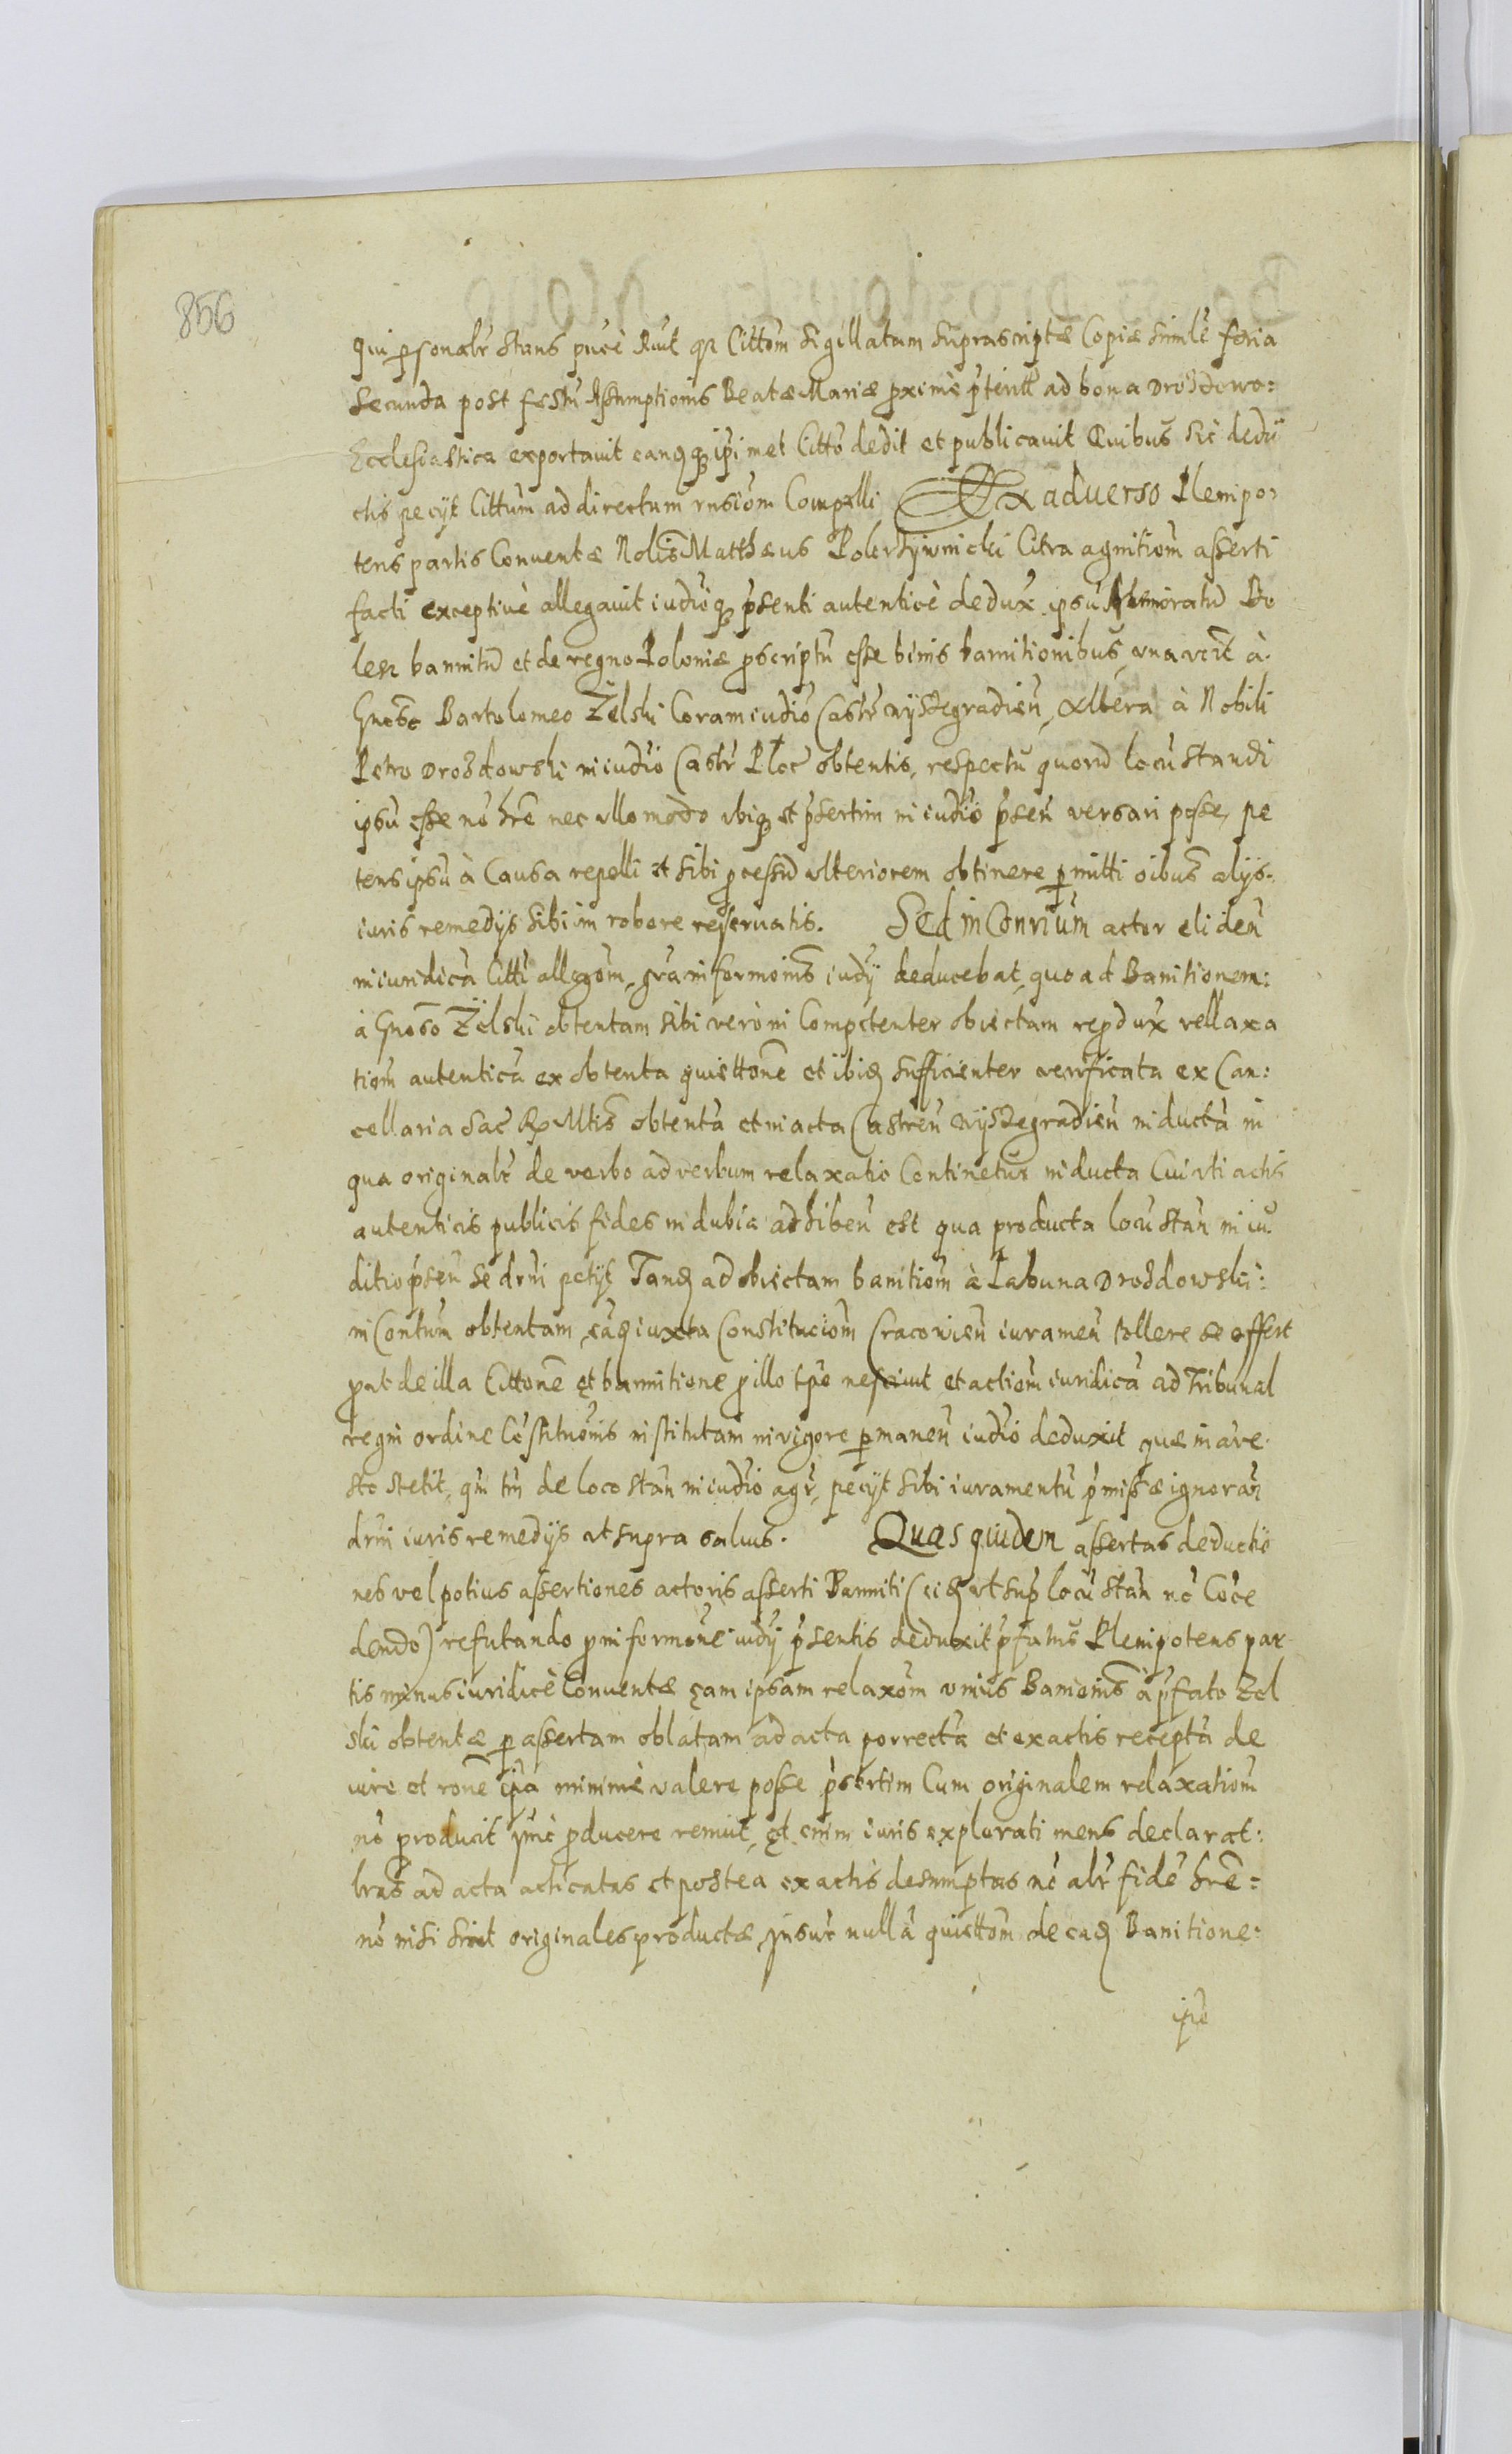 856
qui personalr stans pucè Rcuit qz Cittõm sigillatam suprascriptæ Copiæ similẽ feria
secunda post festũ Assumptionis Beatæ Mariæ proximè pterit ad bona Drozdowo=
Ecclesiastica exportauit eamqz ipimet Citto dedit et publicauit Quibus sic dedu
ctis pecÿt Cittum ad directum rnsiõm Compelli Ex aduerso Plenipo=
tens partis Conuentæ Nolis Matthæus Polerzÿwnicki Citra agnitiom asserti
facti exceptiuè allegauit iudioqz psenti autenticè dedux ipsũ Memoratũ Bo
lesz bannitũ et de regno Poloniæ proscriptũ esse binis bannitionibus vna verè à
Gnoso Bartolomeo Zelski Coram iudio Castr wÿszegradień, altera à Nobili
Petro Drozdowski in iudio Castr Ploc obtentis, respectu quorũ locũ standi
ipsũ esse nõ hre nec vllo modo vbiqz et psertim in iudio pseń versari posse, pe
tens ipsũ à Causa repelli et sibi processũ vlteriorem obtinere permitti oibus alÿs
iuris remedÿs sibi in robore reseruatis. Sed in Conrium actor elideń
iniuridicã Citti allegom, gra informoinis iudÿ deducebat, quo ad Banitionem:
à Gnoso Zelski obtentam sibi verò in Competenter obiectam reprodux rellaxa
tiom autenticã ex obtenta quiettone et ibidẽ sufficienter verificata ex Can:
cellaria Sac Rx Mtis obtentã et in acta Castreń wÿszegradień inductã in
qua originalr de verbo ad verbum relaxatio Continetur inducta Cui vti actis
autenticis publicis fides indubia adhibeń est qua producta locũ stań in iu
ditio pseń se drni petÿt Tandẽ ad obiectam banitiom à Labuna Drozdowski:
in Contum obtentam, eandẽ iuxta Constituciom Cracouień iurameń tollere se offert
prout de illa Cittone et bannitione pro illo tpe nesciuit et actiom iuridicã ad Tribunal
regni ordine Cõstituõnis institutam in vigore permaneń iudio deduxit quæ in are
sto stetit, qm tm de loco stań in iudio agr, pecÿt sibi iuramentũ pmissæ ignorań
drni iuris remedÿs vt supra saluis. Quas quidem assertas deductio
nes vel potius assertiones actoris asserti Banniti (eidẽ vt supra locũ stań nõ Coce
dendo) refutando pro informone iudÿ psentis deduxit pfatus Plenipotens par
tis minus iuridicè Conuentæ eam ipsam relaxom vnius Banionis à pfato Zel
ski obtentæ per assertam oblatam ad acta porrectã et ex actis receptã de
iure et rone ipa minimè valere posse psertim Cum originalem relaxatiom
nõ producit imo producere renuit, et enim iuris explorati mens declarat:
lras ad acta acticatas et postea ex actis desumptas nõ alr fidẽ hre=
nõ nisi sint originales productæ, insur nullã quiettom de eadẽ Banitione:
ipe